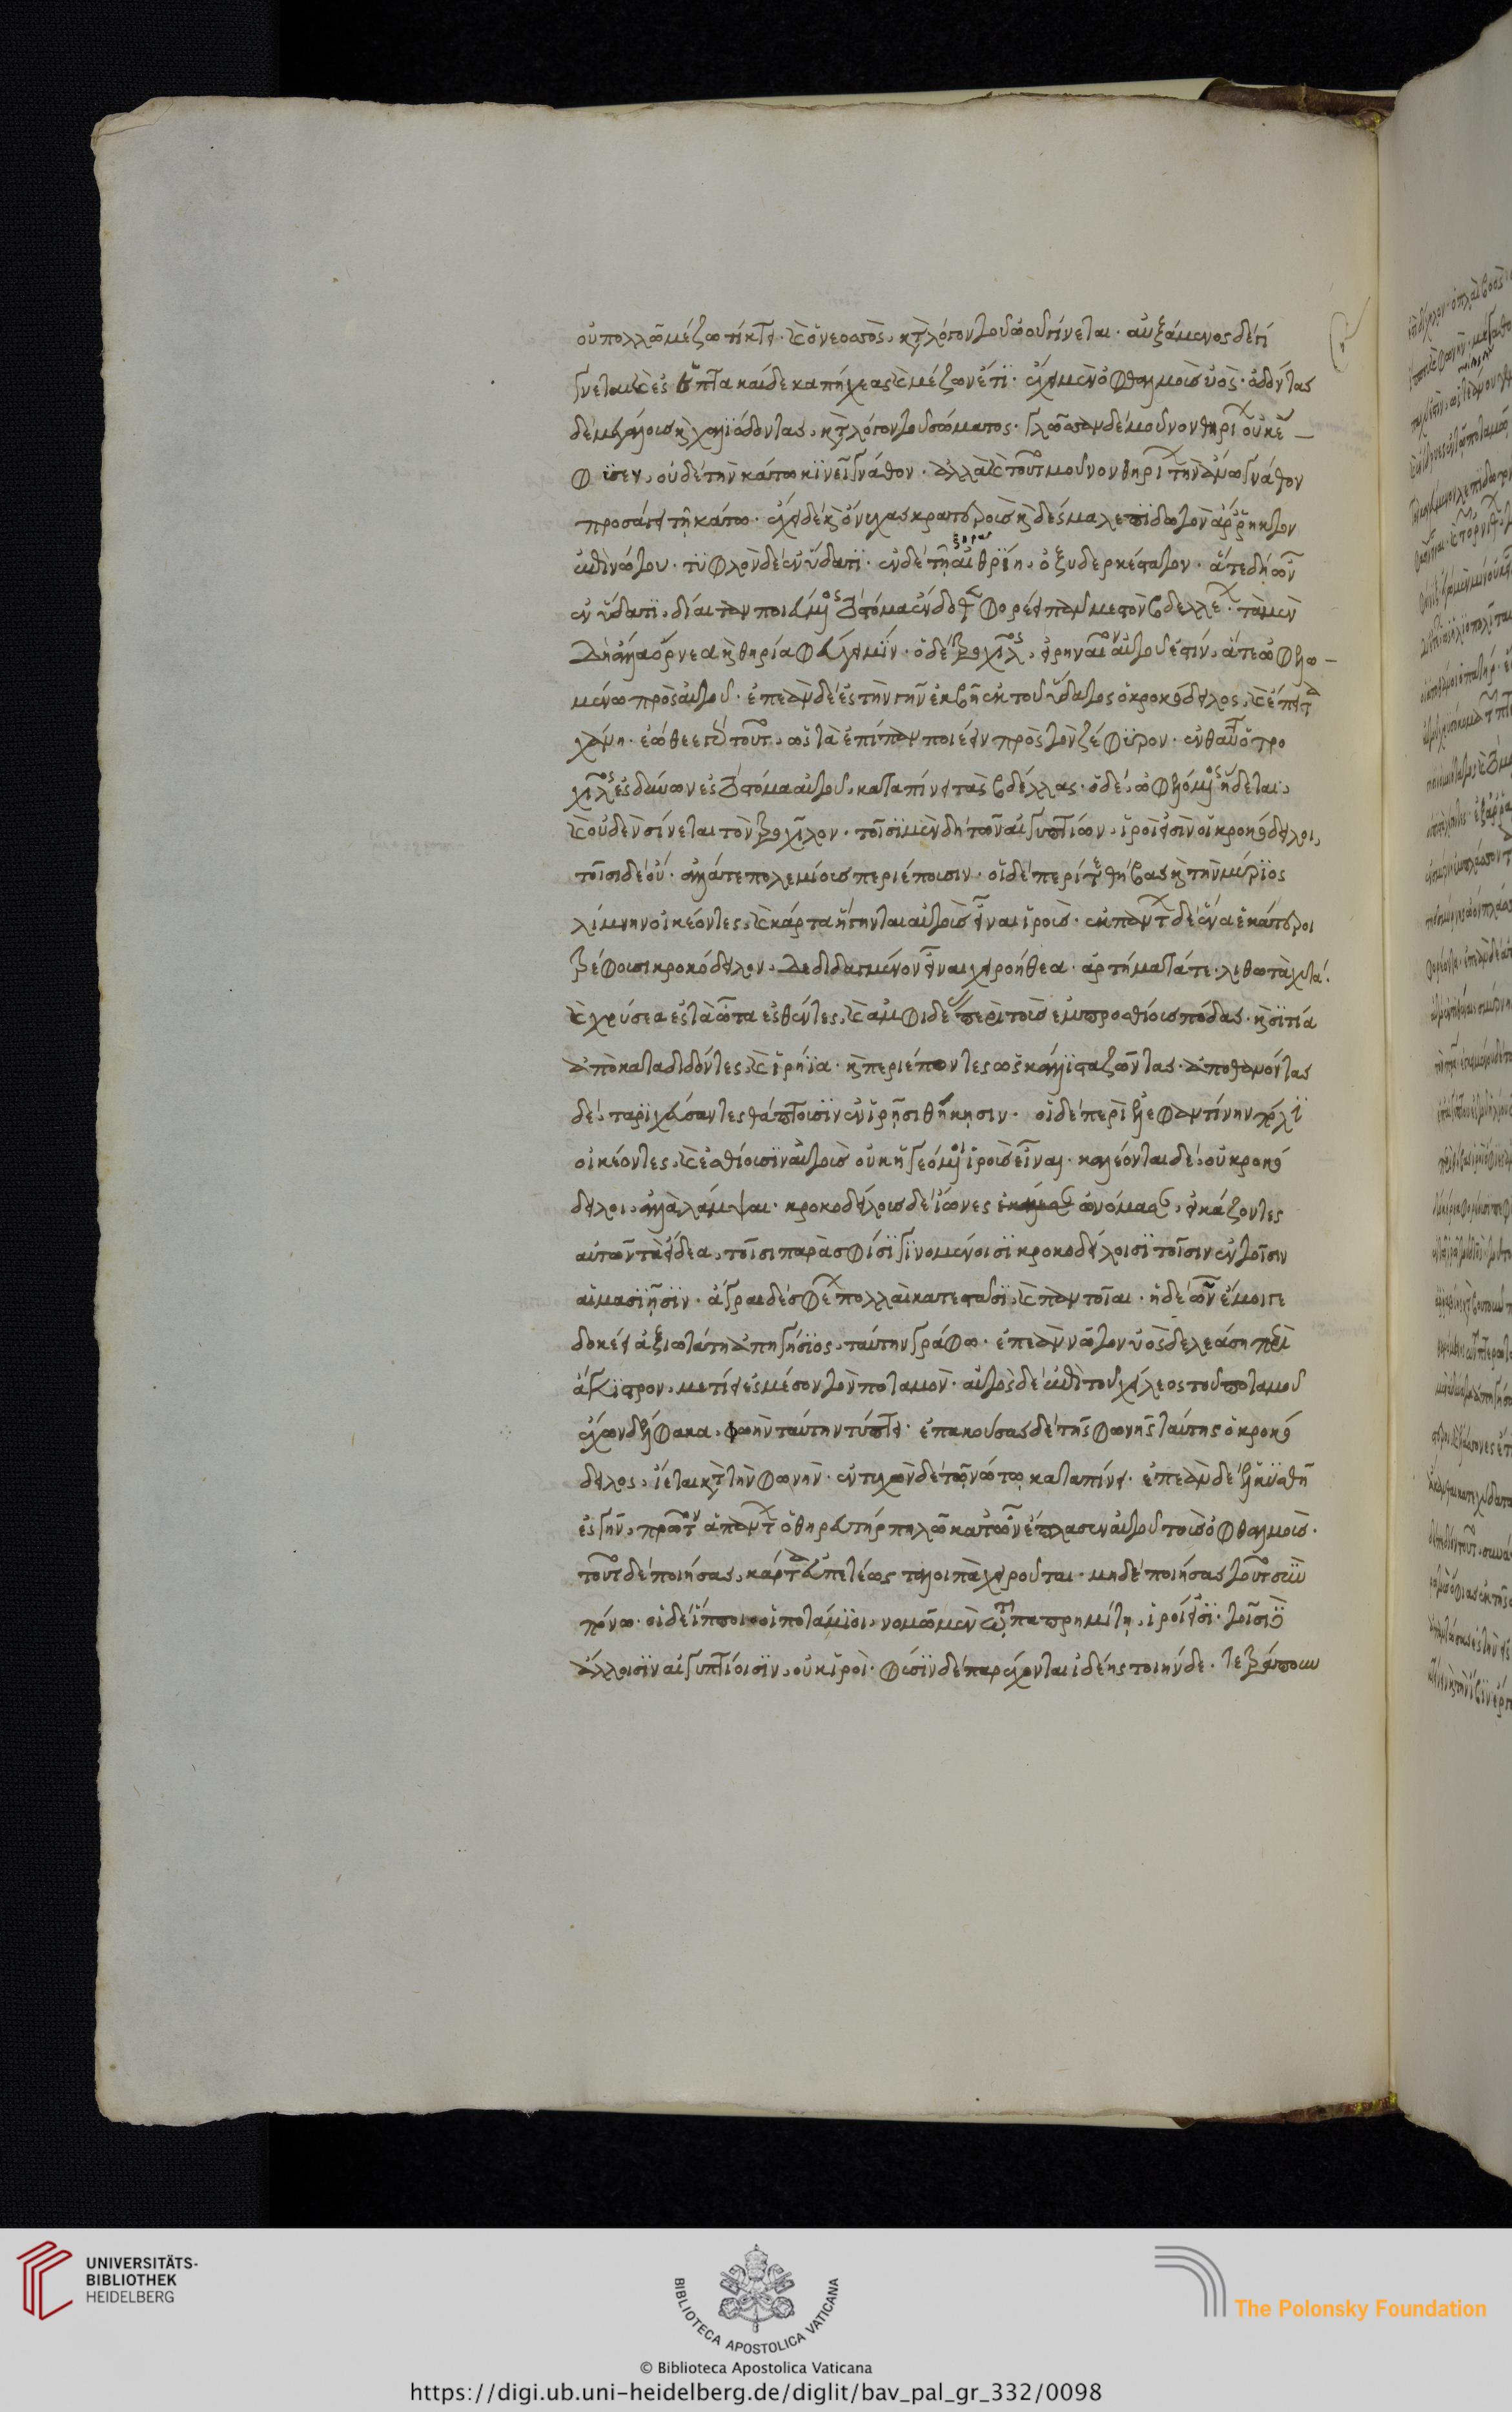 οὐ πολλῶ μέζω τίκτει· καὶ ὁ νεοσσὸς, κατὰ λόγον τοῦ ὠοῦ γίνεται· αὐξάμενος δέ γί
γνεται καὶ ἐς ἑπτὰ καίδεκα πήχεας καὶ μέζων ἔτι· ἔχει μὲν ὀφθαλμοὺς ὑὸς· ὀδόντας
δὲ μεγάλους καὶ χαυλιόδοντας, κατὰ λόγον τοῦ σώματος· γλῶσσαν δὲ μοῦνον θηρίων οὐκ ἔ
φυσεν, οὐδὲ τὴν κάτω κινεῖ γνάθον· ἀλλὰ καὶ τοῦτο μοῦνον θηρίων τὴν ἄνω γνάθον
προσάγει τῆ κάτω· ἔχει δὲ καὶ ὄνυχας κρατεροὺς καὶ δέρμα λεπιδωτὸν ἄρρηκτον
ἐπὶ νώτου· τυφλὸν δὲ ἐν ὕδατι· ἐν δὲ τῆ αἰθρίη, ὀξυδερκέστατον· ἅτε δὴ ὦν
ἐν ὕδατι, δίαιταν ποιεύμενος τὸ στόμα ἔνδοθεν φορέει πᾶν μεστὸν βδελλέων· τὰ μὲν
δὴ ἄλλα ὄρνεα καὶ θηρία φεύγει μιν· ὁ δὲ τροχῖλος, εἰρηναῖον αὐτοῦ ἐστίν, ἅτε ὠφελεο
μένω πρὸς αὐτοῦ· ἐπεὰν δὲ ἐς τὴν γῆν ἐκβῆ ἐκ τοῦ ὕδατος ὁ κροκόδειλος, καὶ ἔπειτα
χάνη· ἐώθεε γὰρ τοῦτο, ὡς τὰ ἐπίπαν ποιέειν πρὸς τὸν ζέφυρον· ἐνθαῦτα ὁ τρο
χῖλος ἐσδύνων ἐς τὸ στόμα αὐτοῦ, καταπίνει τὰς βδέλλας· ὁ δὲ, ὠφελεόμενος ἥδεται,
καὶ οὐδὲν σίνεται τὸν τροχῖλον· τοῖσι μὲν δὴ τῶν αἰγυπτίων, ἱροί εἰσιν οἱ κροκόδειλοι,
τοῖσι δὲ οὔ· ἀλλ' ἅτε πολεμίους περιέπουσιν· οἱ δὲ περί τε θήβας καὶ τὴν μύριος
λίμνην οἰκέοντες, καὶ κάρτα ἥγηνται αὐτοὺς εἶναι ἱρούς· ἐκ πάντων δὲ ἕνα ἑκάτεροι
τρέφουσι κροκόδειλον, δεδιδαγμένον εἶναι χειροήθεα· ἀρτήματά τε λίθινα χυτά·
καὶ χρύσεα ἐς τὰ ὦτα ἐσθέντες, καὶ ἀμφιδέας περὶ τοὺς ἐμπροσθίους πόδας· καὶ σιτία
ἀπὸ κατα διδόντες, καὶ ἱρήια· καὶ περιέποντες ὡς κάλλιστα ζῶντας· ἀποθανόντας
δὲ, ταριχεύσαντες θάπτουσιν ἐν ἱρῆσι θήκησιν· οἱ δὲ περὶ ἐλεφαντίνην πόλι
οἰκέοντες, καὶ ἐσθίουσιν αὐτοὺς οὐκ ἡγεόμενοι ἱροὺς εἶναι· καλέονται δὲ, οὐ κροκό
δειλοι, ἀλλὰ λάμψαι· κροκοδείλους δὲ ἴωνες ὠνόμασαν, εἰκάζοντες
αὐτῶν τὰ εἴδεα, τοῖσι παρὰ σφίσι γινομένοισι κροκοδείλοισι τοῖσιν ἐν τοῖσιν
αἱμασιῆσιν· ἄγραι δὲ σφέων πολλαὶ κατεστᾶσι, καὶ παντοῖαι· ἡ δὲ ὦν ἔμοιγε
δοκέει ἀξιωτάτη ἀπηγήσιος, ταύτην γράφω· ἐπεὰν νῶτον ὑὸς δελεάση περὶ
ἄγκιστρον, μετίει ἐς μέσον τὸν ποταμὸν· αὐτὸς δὲ ἐπὶ τοῦ χείλεος τοῦ ποταμοῦ
ἔχων δέλφακα, ζωὴν ταύτην τύπτει· ἐπακούσας δὲ τῆς φωνῆς ταύτης ὁ κροκό
δειλος, ἵεται κατὰ τὴν φωνὴν· ἐντυχὼν δὲ τῶ νώτω καταπίνει· ἐπεὰν δὲ ἑλκυσθῆ
ἐς γῆν, πρῶτον ἁπάντων ὁ θηρευτὴρ πηλῶ κατ' ὦν ἔπλασεν αὐτοῦ τοὺς ὀφθαλμούς·
τοῦτο δὲ ποιήσας, κάρτα εὐπετέως τὰ λοιπὰ χειροῦται· μὴ δὲ ποιήσας τοῦτο σὺν
πόνω· οἱ δὲ ἵπποι οἱ ποτάμιοι, νομῶ μὲν τῶ παπρημίτη, ἱροί εἰσι· τοῖσι δὲ
ἄλλοισιν αἰγυπτίοισιν, οὐκ ἱροί· φύσιν δὲ παρέχονται ἰδέης τοιήνδε· τετράπουν
UNIVERSITÄTS-
BIBLIOTHEK
HEIDELBERG
BIBLIOTECA APOSTOLICA VATICANA
The Polonsky Foundation
© Biblioteca Apostolica Vaticana
https://digi.ub.uni-heidelberg.de/diglit/bav_pal_gr_332/0098